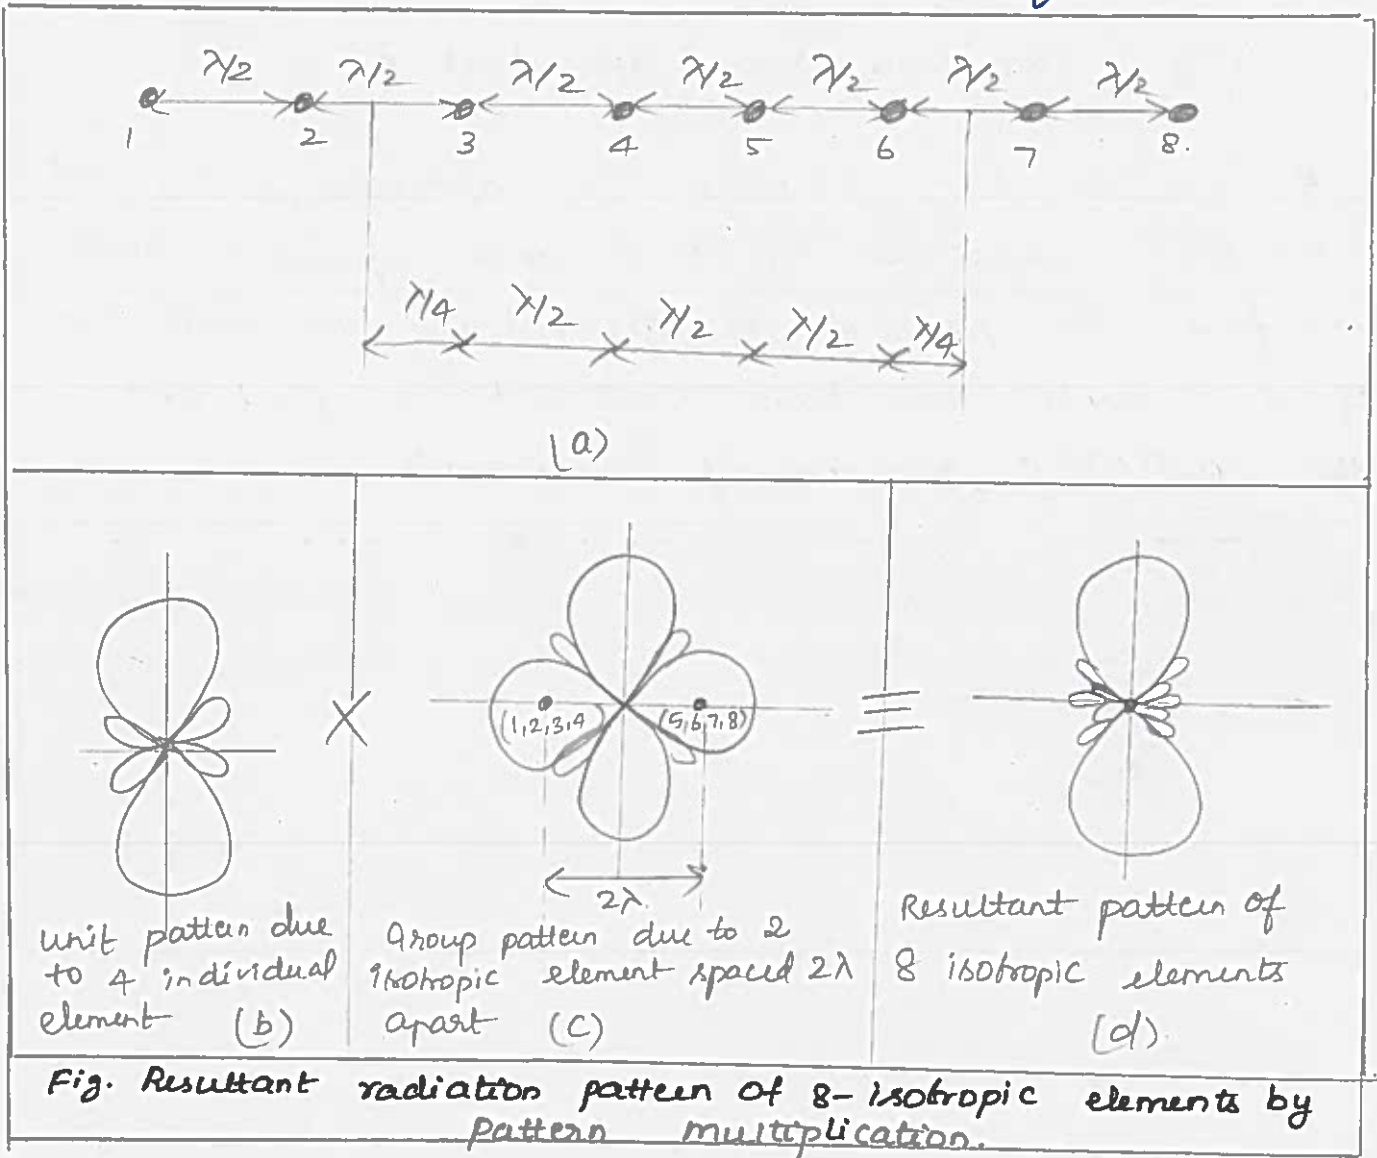 λ/2 λ/2 λ/2 λ/2 λ/2 λ/2 λ/2
1 2 3 4 5 6 7 8.
λ/4 λ/2 λ/2 λ/2 λ/4
(a)
(1,2,3,4 (5,6,7,8)
X
2λ.
unit pattern due
to 4 individual
element (b)
Group pattern due to 2
isotropic element spaced 2λ
apart (c)
Resultant pattern of
8 isotropic elements
(d).
Fig. Resultant radiation pattern of 8-isotropic elements by
pattern multiplication.